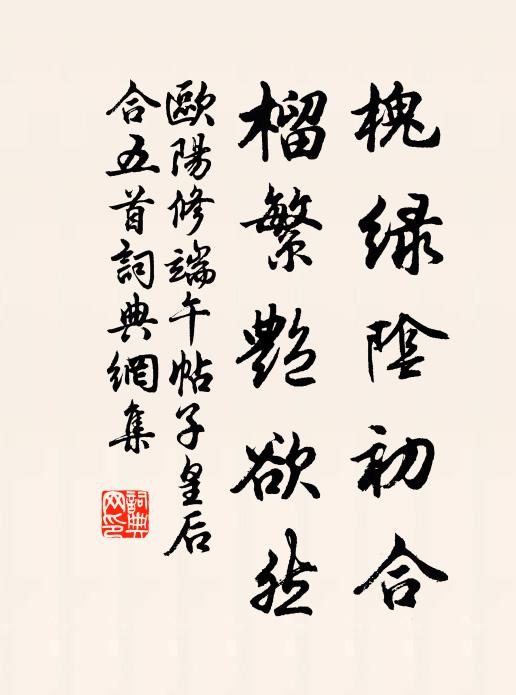 槐绿陰初合
榴繁艷欲然
歐陽修端午帖子皇后
合五首詞典網集
詞典
网印